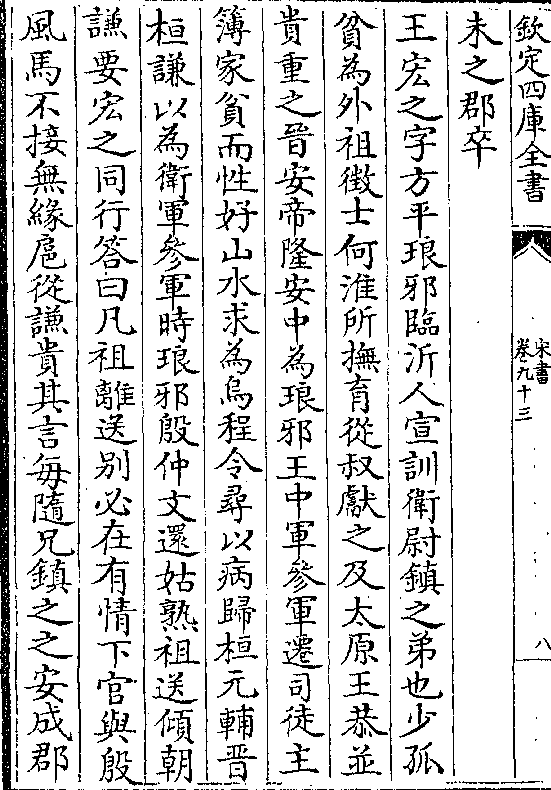 欽定四庫全書
宋書
卷九十三
八
未之郡卒
王宏之字方平琅邪臨沂人宣訓衛尉鎮之弟也少孤
貧為外祖徵士何淮所撫育從叔獻之及太原王恭並
貴重之晉安帝隆安中為琅邪王中軍參軍遷司徒主
簿家貧而性好山水求為烏程令尋以病歸桓元輔晉
桓謙以為衛軍參軍時琅邪殷仲文還姑熟祖送傾朝
謙要宏之同行答曰凡祖離送别必在有情下官與殷
風馬不接無緣扈從謙貴其言每隨兄鎮之之安成郡